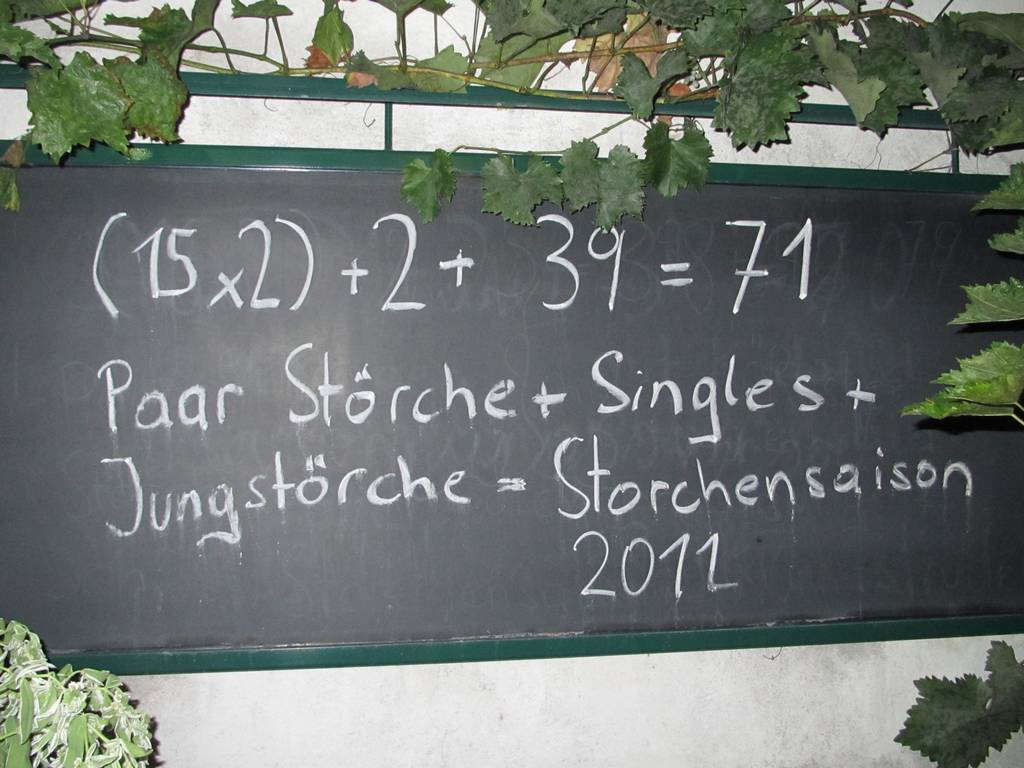 (15x2) + 2 + 39 = 71
Paar Störche + Singles +
Jungstörche = Storchensaison
2011